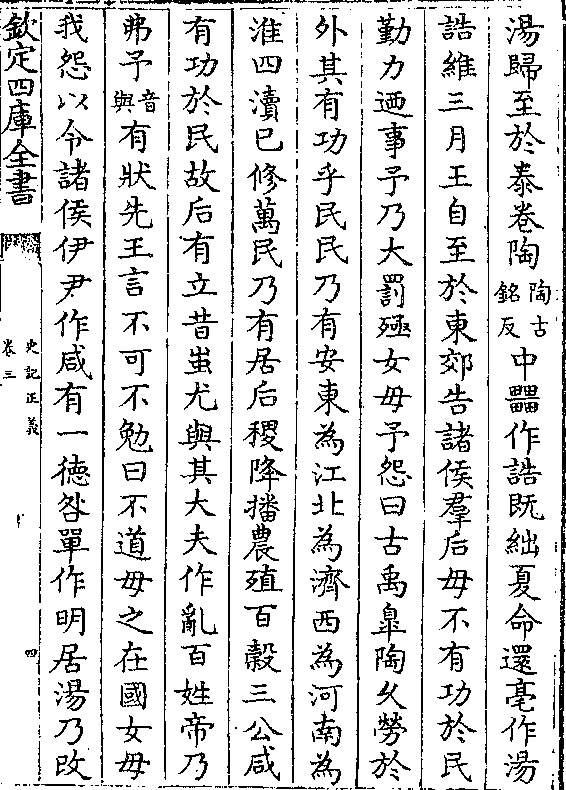 湯歸至於泰卷陶陶古銘反中𤳹作誥既絀夏命還亳作湯
誥維三月王自至於東郊告諸侯羣后毋不有功於民
勤力迺事予乃大罰殛女毋予怨曰古禹臯陶久勞於
外其有功乎民民乃有安東為江北為濟西為河南為
淮四瀆已修萬民乃有居后稷降播農殖百穀三公咸
有功於民故后有立昔蚩尤與其大夫作亂百姓帝乃
弗予音與有狀先王言不可不勉曰不道毋之在國女毋
我怨以令諸侯伊尹作咸有一德咎單作明居湯乃改
欽定四庫全書
史記正義
卷三
四